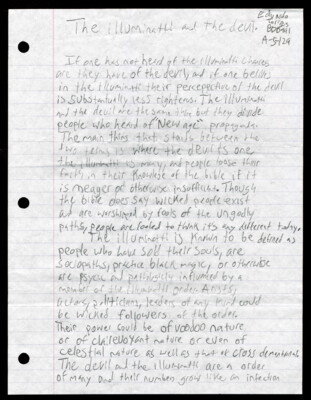 The illuminatti and the devil.
A-5129
If one has not heard of the illuminatti chances
are they have of the devil and if one believes
in the illuminatti then their percerpective of the devil
is substantually less righteous. The Illuminatti
and the devil are the same thing but they
people who heard of "New age" propaganda.
The main thing that starts between the
two terms is where the devil is one
the illuminatti is many, and people loose their
faith in their knowledge of the bible if it
is meager or otherwise insufficient. Though
the bible does say wicked people exist
but are worshiped by fools of the ungodly
paths, people are fooled to think its any different today.
The illuminatti is known to be defined as
people who have sold their souls, are
sociopaths, practice black magic, or otherwise
are psycic and influenced by a
member of the illuminatti order. Artists,
actors, politicians, leaders of any kind could
be wicked followers of the order.
Their power could be of voodoo nature
or of clairevoyant nature or even of
celestial nature as well as that of cross demensional.
The devil and the illuminatti are a order
of many and their number grow like an infection